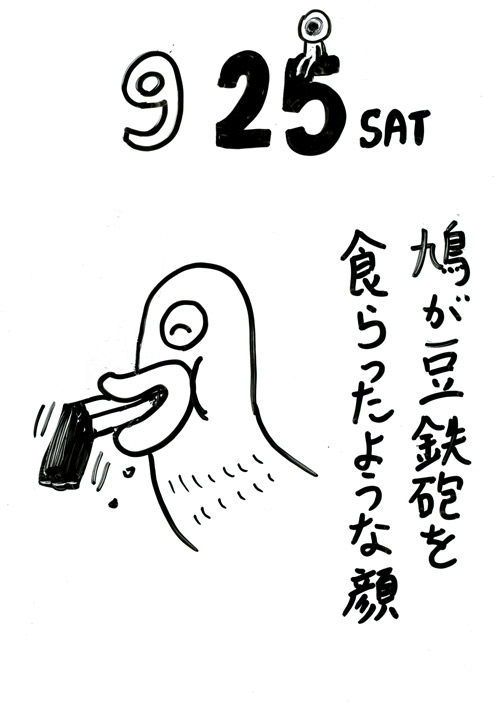 9 25 SAT
鳩が豆鉄砲を
食らったような顔